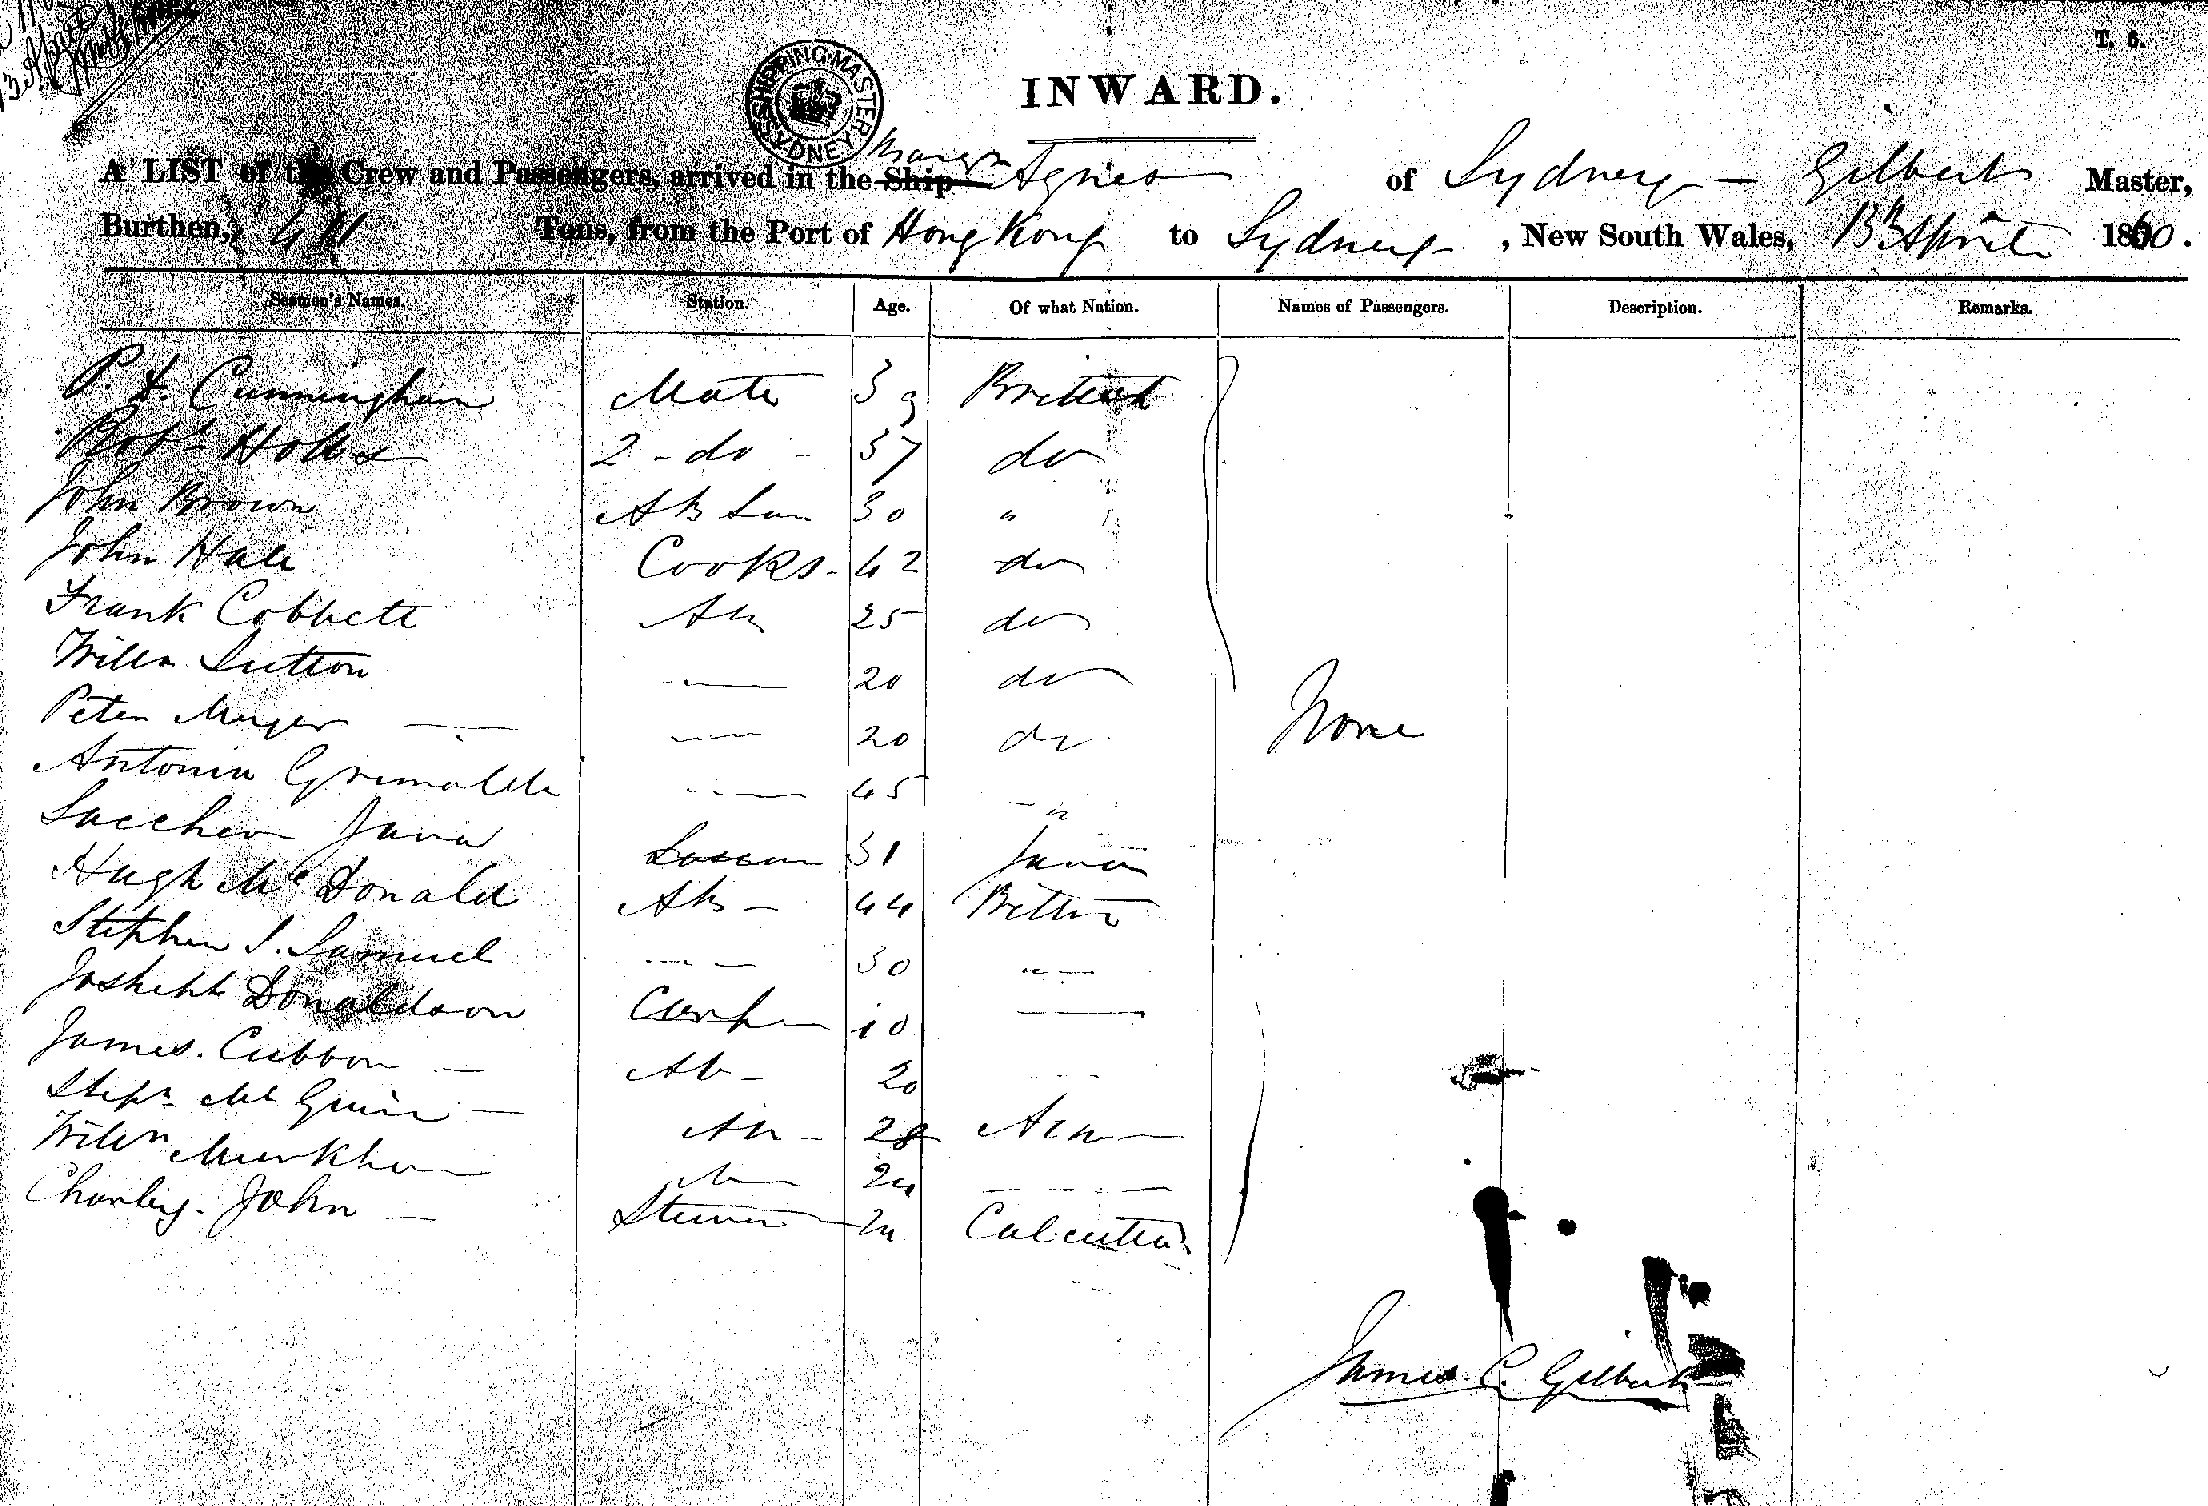 T. 6.
SHIPPING MASTER SYDNEY
INWARD.
A LIST of the Crew and Passengers, arrived in the Ship Agnes of Sydney - Gilbert Master,
Burthen, Tons, from the Port of Hong Kong to Sydney, New South Wales, 13th April 1860.
Seamen's Names. Station. Age. Of what Nation. Names of Passengers. Description. Remarks.
Cunningham Mate 39 British
Robt 2 - do - 37 do
John Brown AB 30 "
John Hale Cooks - 42 do
Frank Cobbett AB 25 do
Willm Sutton — 20 do
Peter Meyer — — 20 do
Antonia Grimaldi — 45 "
Java 31 Java
None
Hugh McDonald AB - 44
Stephen S. Samuel — — 30 " —
Donaldson —
James. Cubbon — AB - 20
Stepn Mc — AB - 28
Willm — 24 — —
Charley. John — 24 Calcutta
James C. Gilbert